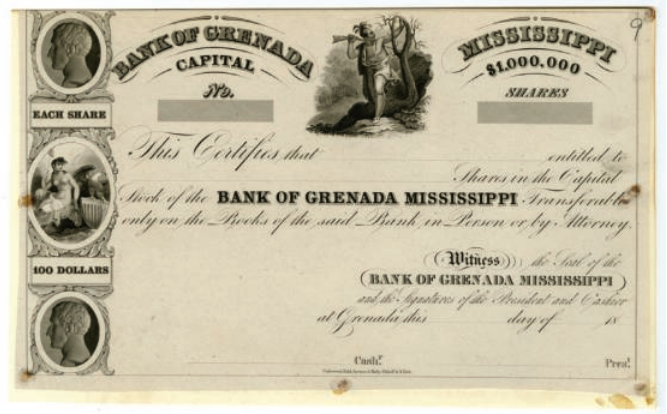 9
BANK OF GRENADA
MISSISSIPPI
CAPITAL
$1,000,000
No.
SHARES
EACH SHARE
This Certifies that entitled to
Shares in the Capital
Stock of the BANK OF GRENADA MISSISSIPPI Transferable
only on the Books of the said Bank, in Person or by Attorney.
Witness the Seal of the
100 DOLLARS
BANK OF GRENADA MISSISSIPPI
and the Signatures of the President and Cashier
at Grenada, this day of 18
Cashr.
Presd.